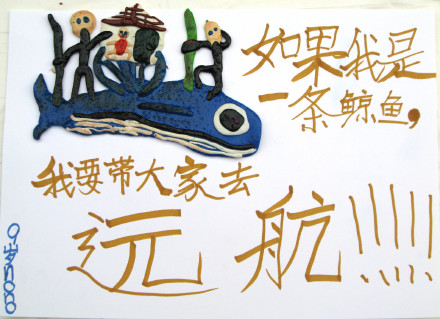 如果我是
一条鲸鱼，
我要带大家去
远航!!!!!